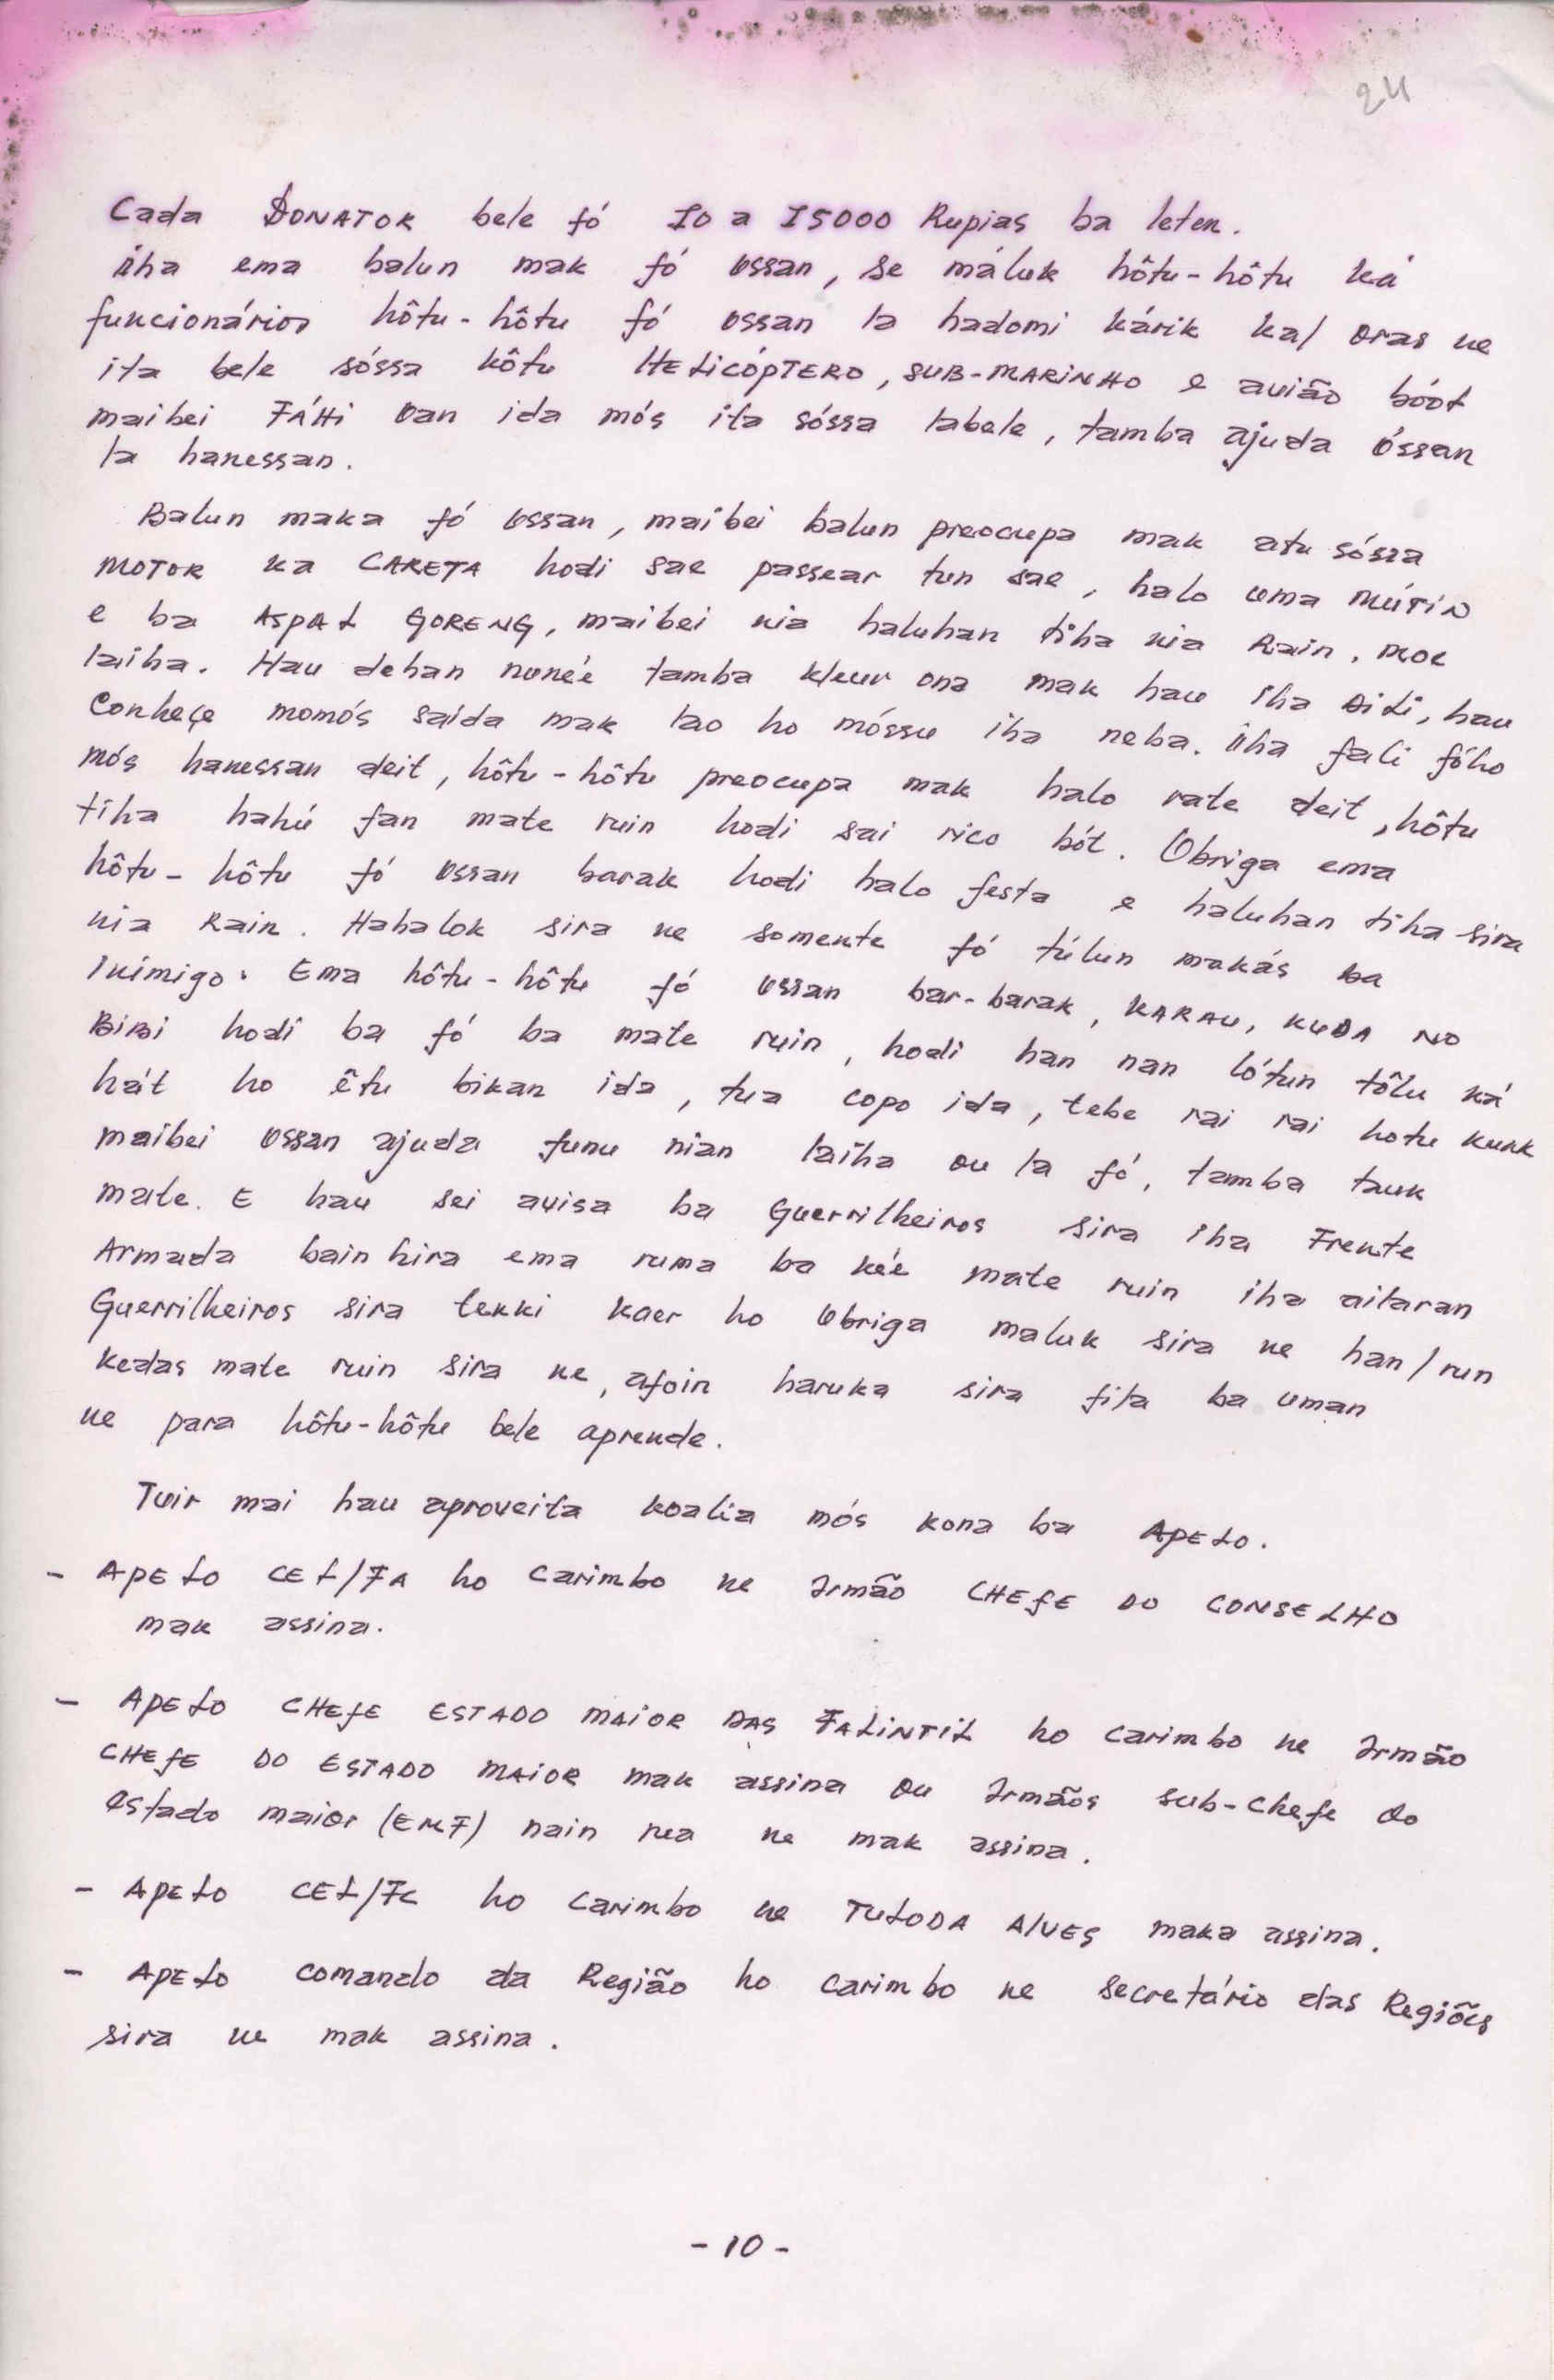 24
Cada DONATOR bele fó 10 a 15000 Rupias ba leten.
iha ema balun mak fó ossan, se máluk hôtu-hôtu ká
funcionários hôtu-hôtu fó ossan la hadomi kárik kal oras ne
ita bele sóssa hôtu HELICÓPTERO, SUB-MARINHO e avião bóot
maibei FÁHI oan ida mós ita sóssa labele, tamba ajuda óssan
la hanessan.
Balun maka fó ossan, maibei balun preocupa mak atu sóssa
MOTOR ka CARETA hodi sae passear tun sae, halo uma MÚTIN
e ba ASPAL GORENG, maibei nia haluhan tiha nia Rain, moe
laiha. Hau dehan nuneé tamba kleur ona mak hau iha DiLi, hau
Conheçe momós saida mak lao ho móssu iha neba. iha fali fóho
mós hanessan deit, hôtu-hôtu preocupa mak halo rate deit, hôtu
tiha hahú fan mate ruin hodi sai rico bót. Obriga ema
hôtu-hôtu fó ossan barak hodi halo festa e haluhan tiha sira
nia Rain. Hahalok sira ne somente fó túlun makás ba
Inímigo. Ema hôtu-hôtu fó ossan bar-barak, KARAU, KUDA NO
BiBi hodi ba fó ba mate ruin, hodi han nan lótun tôlu ká
hát ho êtu bikan ida, tua copo ida, tebe rai rai hotu kuak
maibei ossan ajuda funu nian laiha ou la fó, tamba tauk
mate. E hau sei avisa ba Guerrilheiros sira iha Frente
Armada bain hira ema ruma ba keé mate ruin iha aitaran
Guerrilheiros sira tekki kaer ho obriga maluk sira ne han/run
kedas mate ruin sira ne, afoin haruka sira fila ba uman
ne para hôtu-hôtu bele aprende.
Tuir mai hau aproveita koalia mós kona ba APELO.
- APELO CEL/FA ho carimbo ne Irmão CHEFE DO CONSELHO
mak assina.
- APELO CHEFE ESTADO MAIOR DAS FALINTIL ho carimbo ne Irmão
CHEFE DO ESTADO MAIOR mak assina ou Irmãos sub-chefe do
estado maior (EMF) nain rua ne mak assina.
- APELO CEL/FC ho carimbo ne TULODA AlVES maka assina.
- APELO comando da Região ho carimbo ne secretário das Regiões
sira ne mak assina.
- 10 -